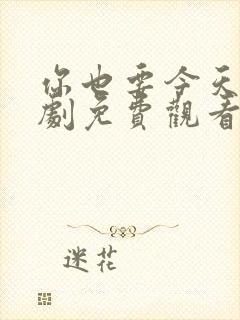 你也要今天
劇免費觀看
迷花